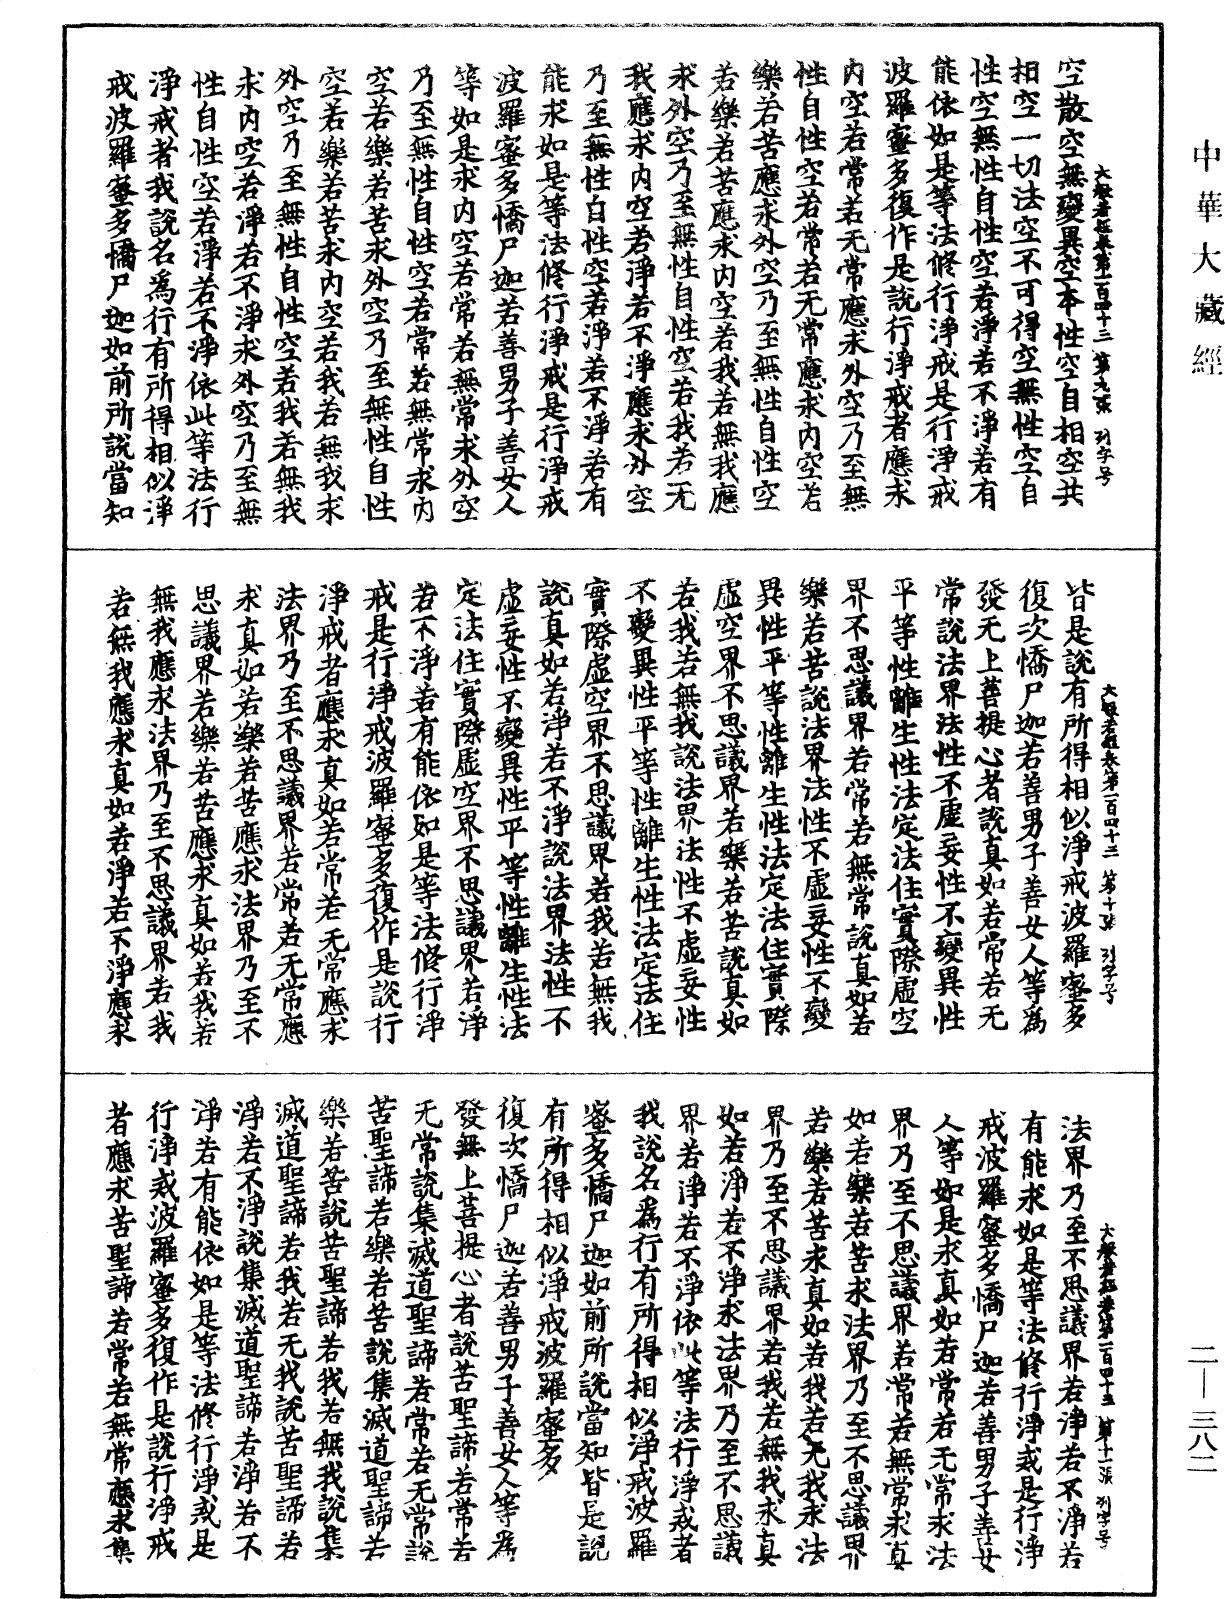 中華大藏經
大般若經卷第一百四十三 第九張 列字号
空散空無變異空本性空自相空共
相空一切法空不可得空無性空自
性空無性自性空若淨若不淨若有
能依如是等法修行淨戒是行淨戒
波羅蜜多復作是說行淨戒者應求
内空若常若无常應求外空乃至無
性自性空若常若无常應求内空若
樂若苦應求外空乃至無性自性空
若樂若苦應求内空若我若無我應
求外空乃至無性自性空若我若无
我應求内空若淨若不淨應求外空
乃至無性自性空若淨若不淨若有
能求如是等法修行淨戒是行淨戒
波羅蜜多憍尸迦若善男子善女人
等如是求内空若常若無常求外空
乃至無性自性空若常若無常求内
空若樂若苦求外空乃至無性自性
空若樂若苦求内空若我若無我求
外空乃至無性自性空若我若無我
求内空若淨若不淨求外空乃至無
性自性空若淨若不淨依此等法行
淨戒者我說名為行有所得相似淨
戒波羅蜜多憍尸迦如前所說當知
大般若經卷第一百四十三 第十張 列字号
皆是說有所得相似淨戒波羅蜜多
復次憍尸迦若善男子善女人等為
發无上菩提心者說真如若常若无
常說法界法性不虛妄性不變異性
平等性離生性法定法住實際虛空
界不思議界若常若無常說真如若
樂若苦說法界法性不虛妄性不變
異性平等性離生性法定法住實際
虛空界不思議界若樂若苦說真如
若我若無我說法界法性不虛妄性
不變異性平等性離生性法定法住
實際虛空界不思議界若我若無我
說真如若淨若不淨說法界法性不
虛妄性不變異性平等性離生性法
定法住實際虛空界不思議界若淨
若不淨若有能依如是等法修行淨
戒是行淨戒波羅蜜多復作是說行
淨戒者應求真如若常若无常應求
法界乃至不思議界若常若无常應
求真如若樂若苦應求法界乃至不
思議界若樂若苦應求真如若我若
無我應求法界乃至不思議界若我
若無我應求真如若淨若不淨應求
大般若經卷第一百四十三 第十一張 列字号
法界乃至不思議界若淨若不淨若
有能求如是等法修行淨戒是行淨
戒波羅蜜多憍尸迦若善男子善女
人等如是求真如若常若无常求法
界乃至不思議界若常若無常求真
如若樂若苦求法界乃至不思議界
若樂若苦求真如若我若无我求法
界乃至不思議界若我若無我求真
如若淨若不淨求法界乃至不思議
界若淨若不淨依此等法行淨戒者
我說名為行有所得相似淨戒波羅
蜜多憍尸迦如前所說當知皆是說
有所得相似淨戒波羅蜜多
復次憍尸迦若善男子善女人等為
發無上菩提心者說苦聖諦若常若
无常說集滅道聖諦若常若无常說
苦聖諦若樂若苦說集滅道聖諦若
樂若苦說苦聖諦若我若無我說集
滅道聖諦若我若无我說苦聖諦若
淨若不淨說集滅道聖諦若淨若不
淨若有能依如是等法修行淨戒是
行淨戒波羅蜜多復作是說行淨戒
者應求苦聖諦若常若無常應求集
二—三八二